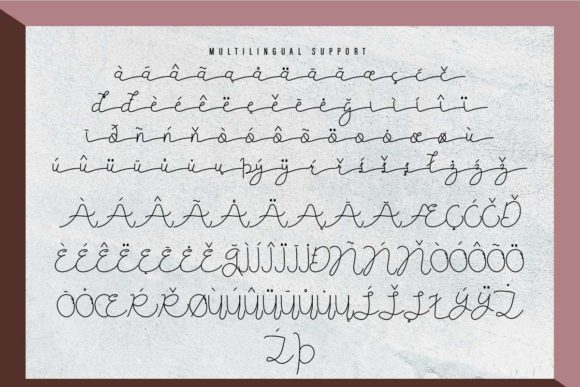 MULTILINGUAL SUPPORT
àáâãąåäāăæçćč
ďđèéêëęěēėğıìíîï
īðñńňòóôõöőøœøù
úûüūůűųþýÿŕřśšşłżźž
ÀÁÂÃÅÄĄĀĂÆÇĆČĐ
ÈÉÊËĘĒĖĚĞÌÍÎÏĪİĐÑŃŇÒÓÔÕÖ
ŌŐŒŔŘØÙÚÛÜŰŪŮŲŚŠŞŁÝŸŻ
Źþ